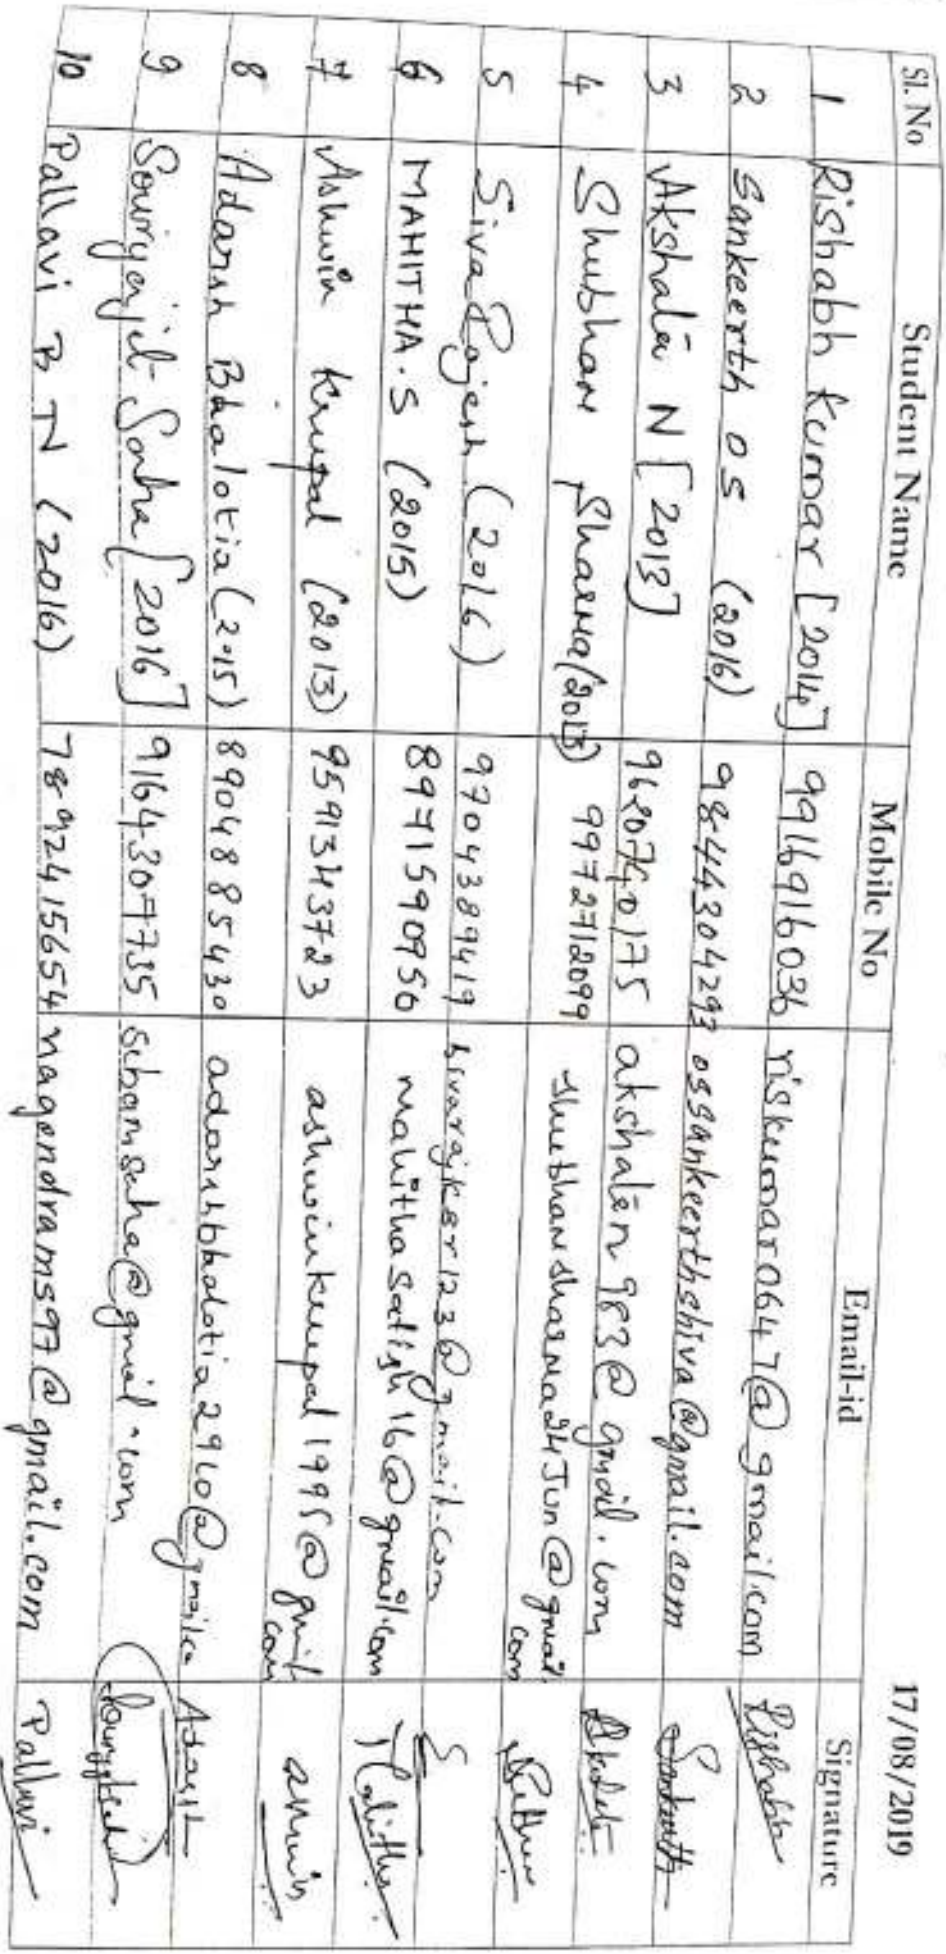 17/08/2019
Sl. No Student Name Mobile No Email-id Signature
1 Rishabh Kumar [2014] 9916916036 riskumar0647@gmail.com Rishabh
2 Sankeerth OS (2016) 9844304293 ossankeerthshiva@gmail.com Sankeerth
3 Akshala N [2013] 9620740175 akshalan983@gmail.com
4 Shubham Sharma (2013) 9972712099 shubhamsharma24Jun@gmail
com
5 Siva Rajesh (2016) 9704389419 @gmail.com
6 MAHITHA.S (2015) 8971590950 mahithasatish16@gmail.com Mahitha
7 Ashwin Krupal (2013) 9591343723 ashwinkrupal1995@gmail
com Ashwin
8 Adarsh Bhalotia (2015) 8904885430 adarshbhalotia2910@gmail.co Adarsh
9 Souryajit Saha [2016] 9164307735 sibamsaha@gmail.com Souryajit
10 Pallavi B N (2016) 7892415654 nagendrams97@gmail.com Pallavi